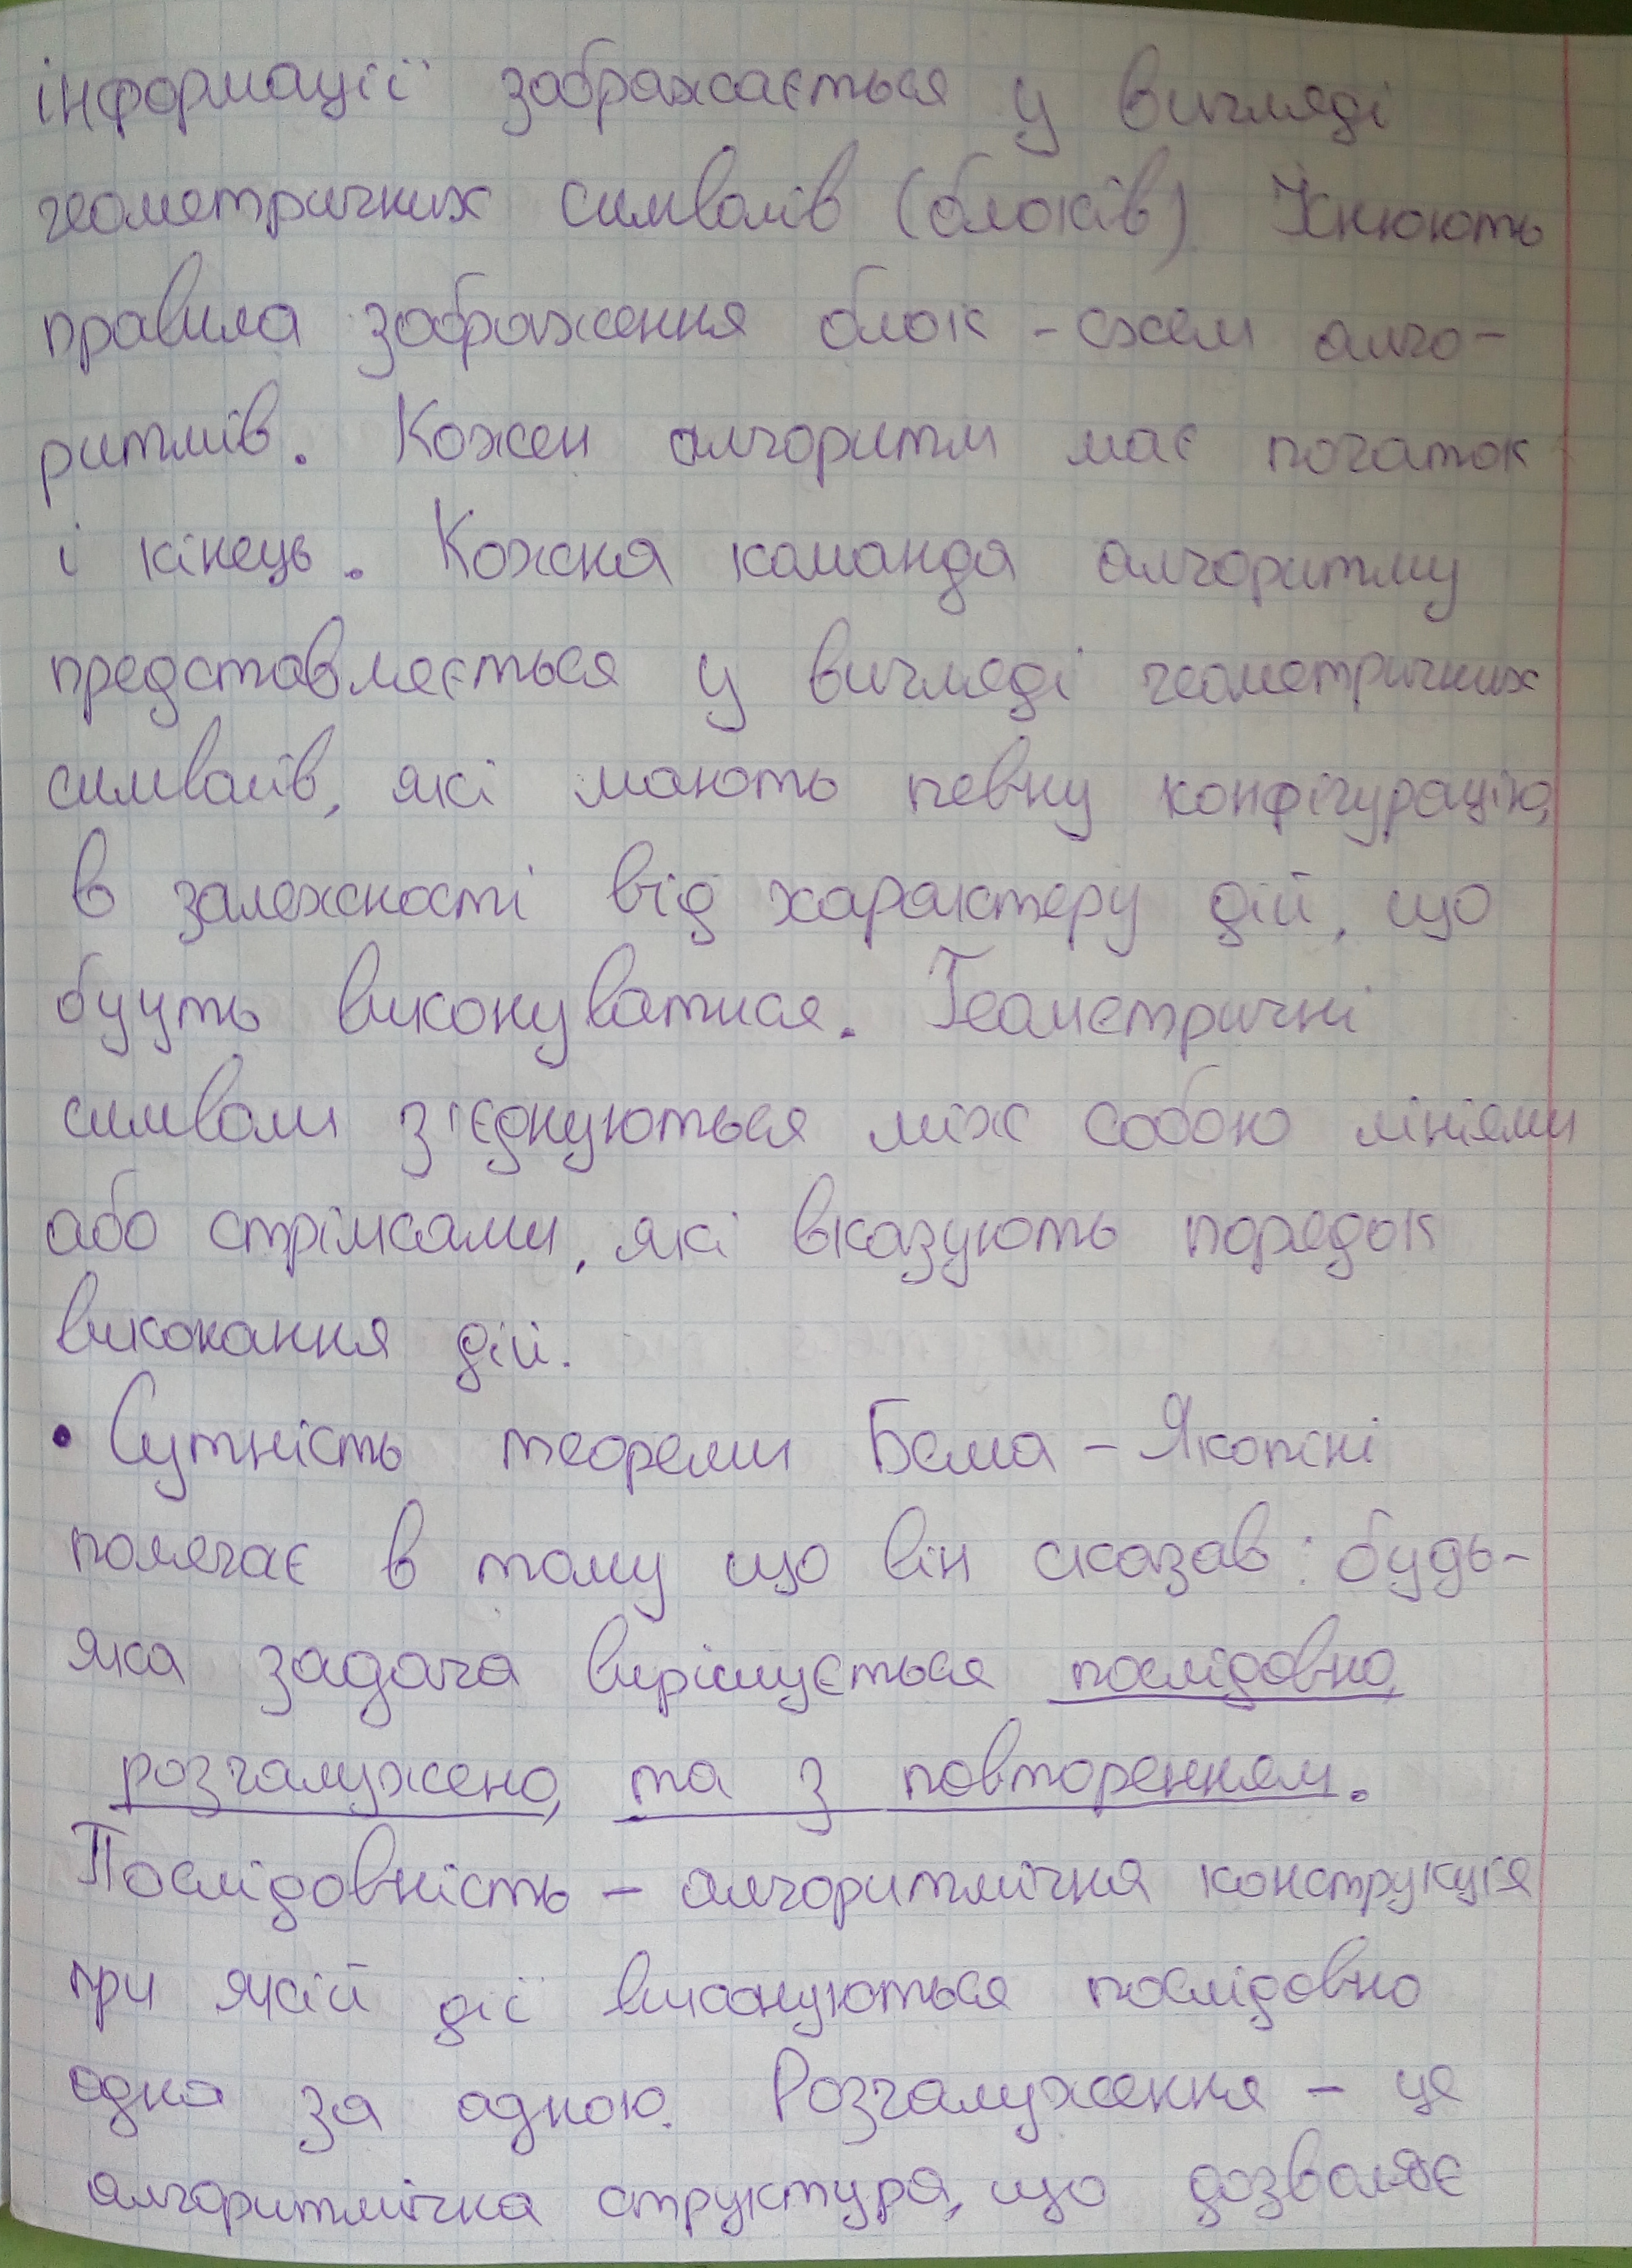 інформації зображається у вигляді
геометричних символів (блоків). Існюють
правила зображення блок - схем алго-
ритмів. Кожен алгоритм має початок
і кінець. Кожна команда алгоритму
представляється у вигляді геометричних
символів, які мають певну конфігурацію,
в залежності від характеру дій, що
бууть виконуватися. Геометричні
символи з'єднуються між собою лініями
або стрілками, які вказують порядок
виконання дій.
• Сутність теореми Бема - Якопіні
полягає в тому що він сказав: будь-
яка задача вирішується послідовно,
розгалужено, та з повторенням.
Послідовність - алгоритмічна конструкція
при якій дії виконуються послідовно
одна за одною. Розгалуження - це
алгоритмічна структура, що дозволяє